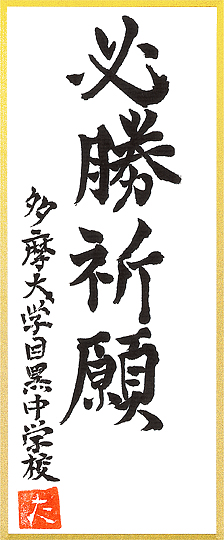 必勝祈願
多摩大学目黒中学校
た